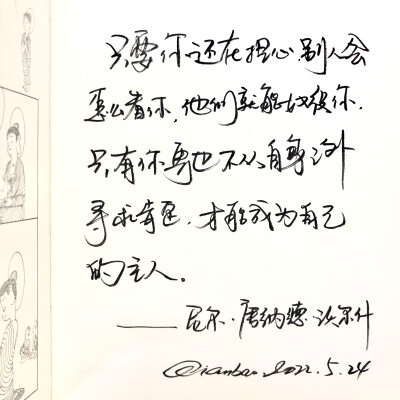 只要你还在担心别人会
怎么看你,他们就能奴役你.
只有你再也不从自身之外
寻求肯定.才能成为自己
的主人。
——尼尔·唐纳德·沃尔什
Qianbao 2022.5.24